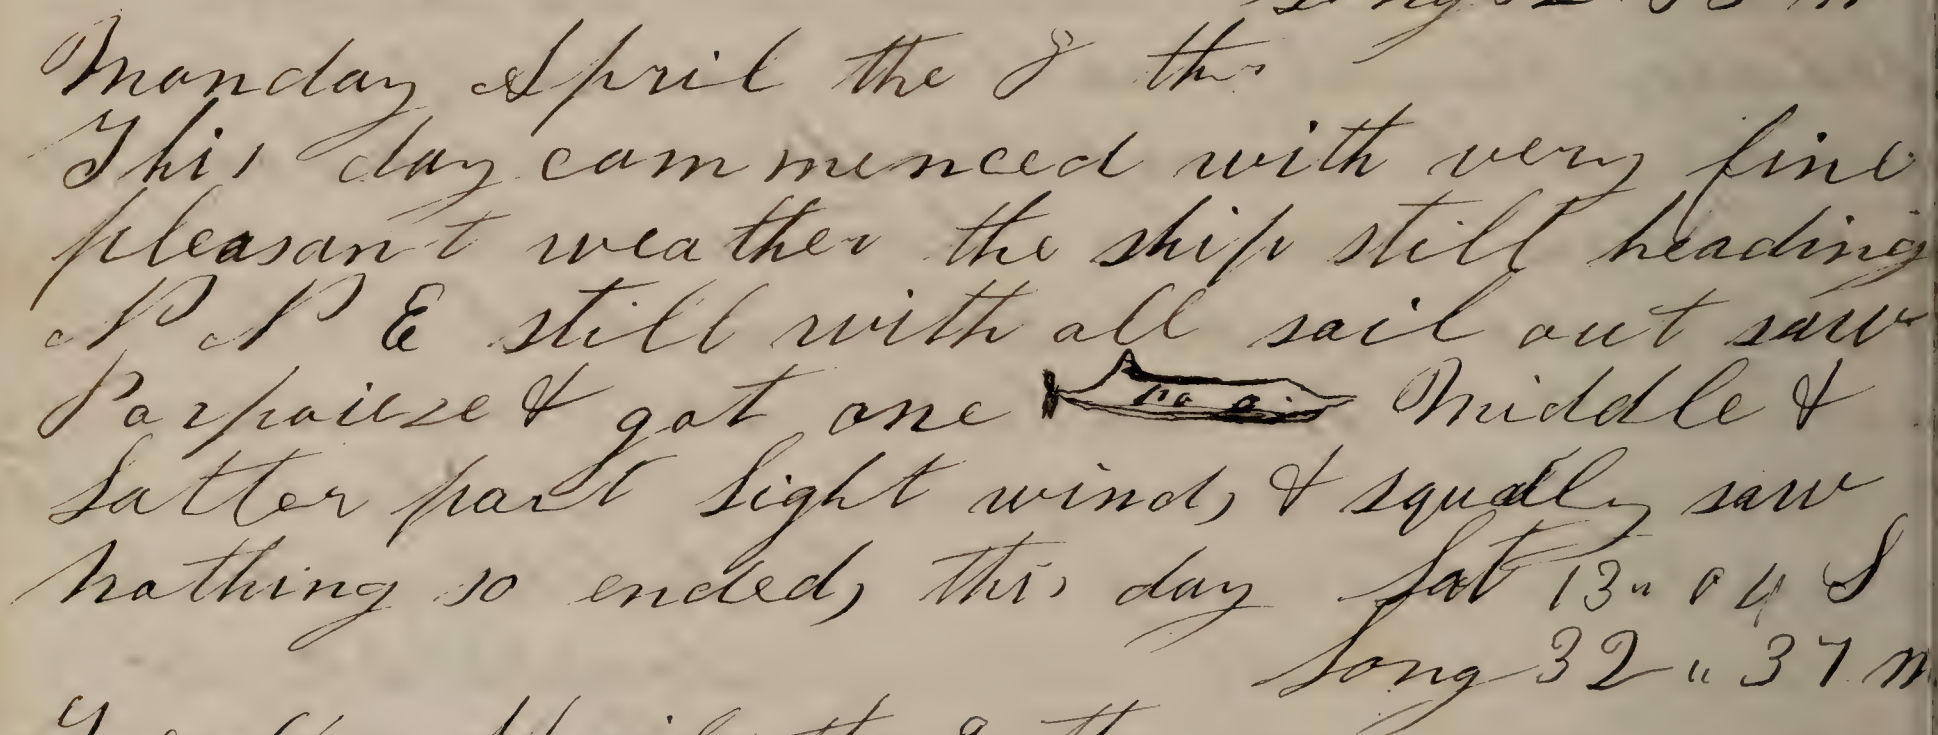 Monday April the 8 th
This day commenced with very fine
pleasant weather the ship still heading
N N E still with all sail out saw
Porpoieze & got one Middle &
Latter part Light wind, & squally saw
nothing so ended, this day Lat 13" 04 S
Long 32 " 37 W